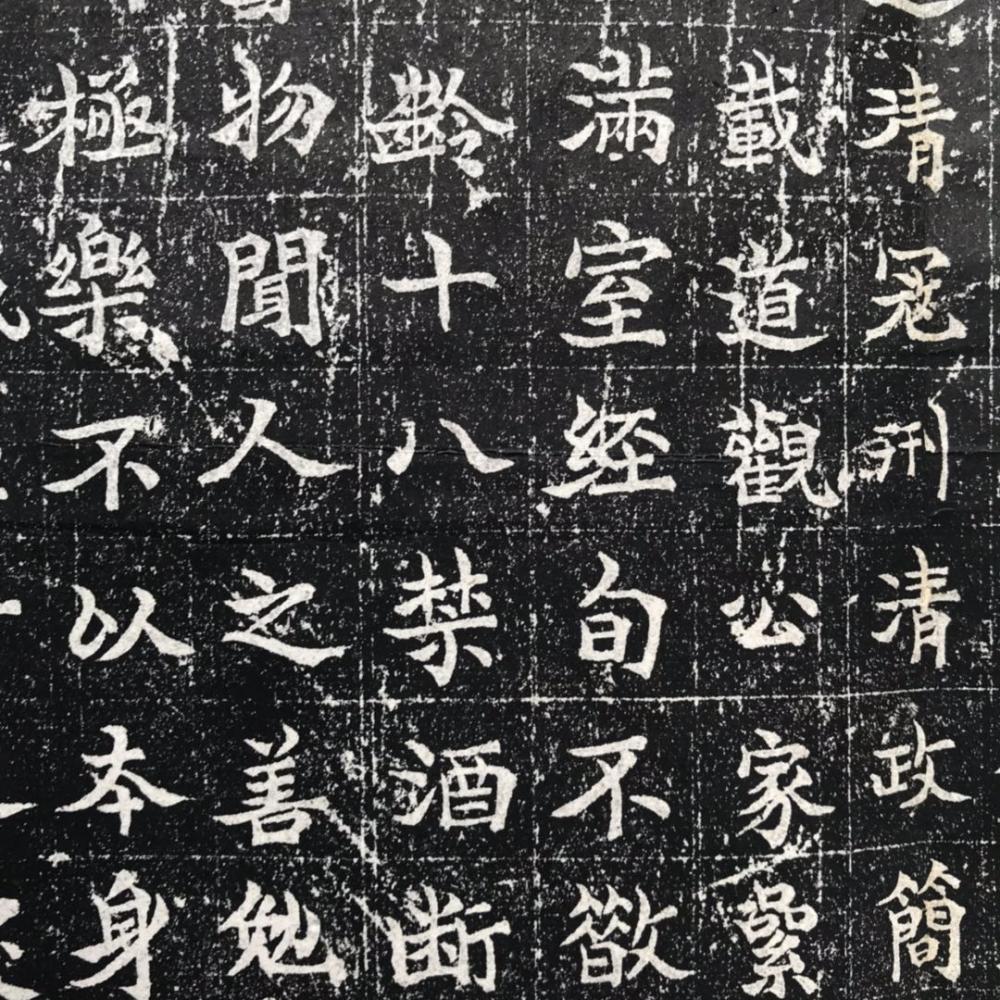 清冦荊清政簡
載道觀公家纍
滿室經旬不散
齡十八禁酒断
物聞人之善勉
極樂不以本身